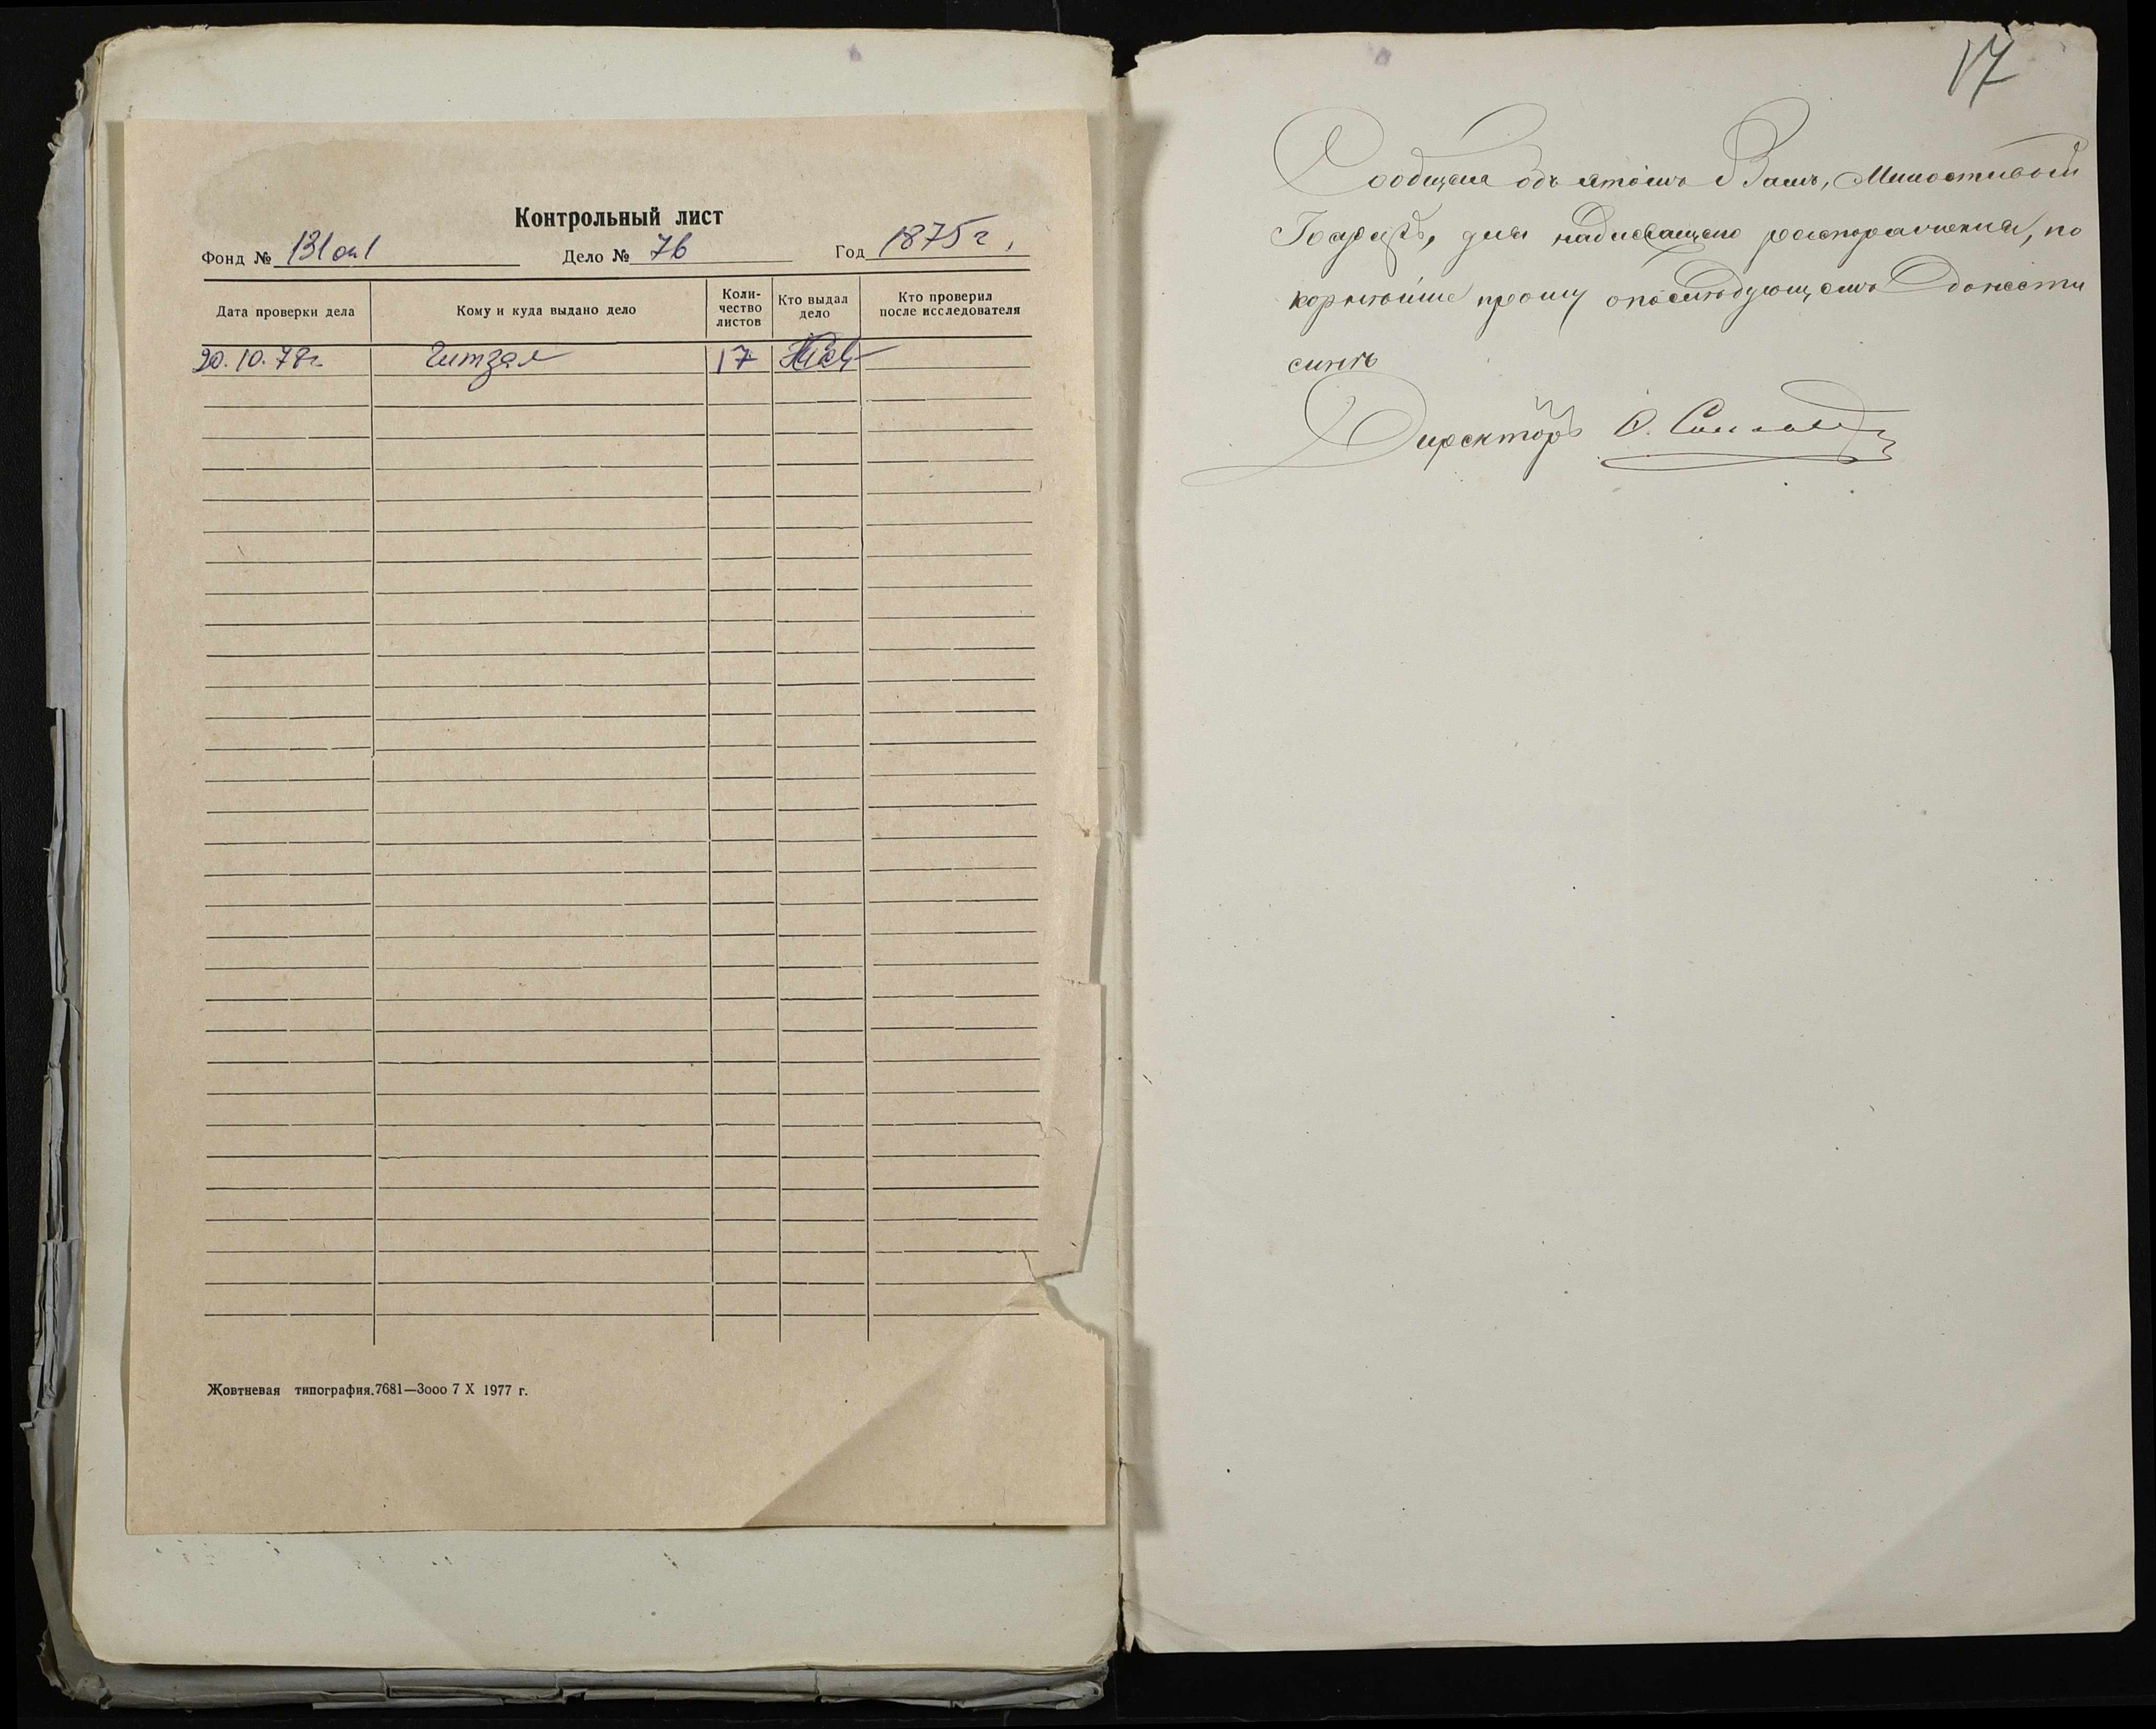 Контрольный лист
Фонд № 131 оп 1 Дело № 76 Год 1875 г.
Дата проверки дела Кому и куда выдано дело Коли-чество листов Кто выдал дело Кто проверил после исследователя
20.10.78г Читзал 17
Жовтневая типография.7681—3000 7 X 1977 г.
17
Сообщая объ этомъ Вамъ, Милостивый
Государь, для надлежащаго распоряженія, по
корнѣйше прошу о послѣдующемъ донести
Директоръ